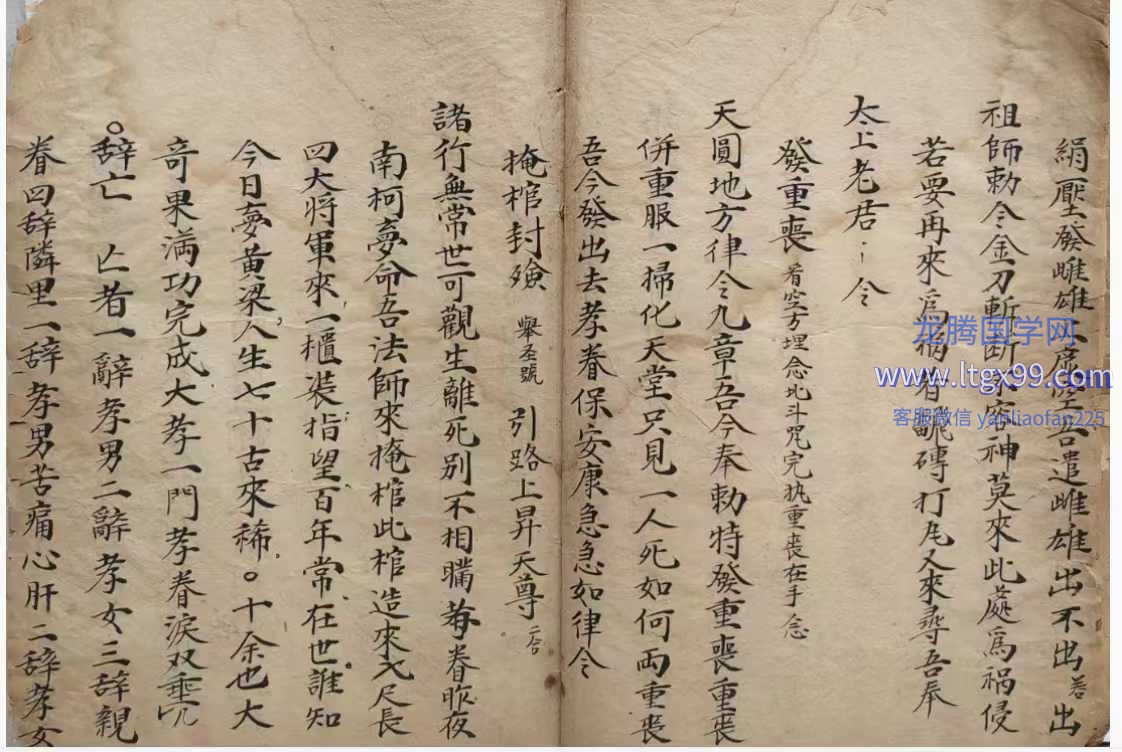 絹壓發雌雄　虛空吾遣雌雄出不出若出
祖師勅令金刀斬斷　神莫來此處爲禍侵
若要再來爲禍者　磚打瓦又來尋吾奉
太上老君⋮令
發重喪 看空方埋念北斗咒完执重喪在手念
天圓地方律令九章吾今奉勅特發重喪重喪
併重服一掃化天堂只見一人死如何兩重喪
吾今發出去孝眷保安康急急如律令
掩棺封殮 舉圣號 引路上昇天尊 二合
諸行無常世可觀生離死別不相瞞孝眷昨夜
南柯夢命吾法師來掩棺此棺造來七尺長
四大將軍來一櫃裝指望百年常在世誰知
今日夢黃梁人生七十古來稀。十余也大
奇果满功完成大孝一門孝眷淚双垂
。辞亡 亡者一辭孝男二辭孝女三辞親
眷四辞隣里一辞孝男苦痛心肝二辞孝女
龙腾国学网
www.ltgx99.com
客服微信 yanliaofan225